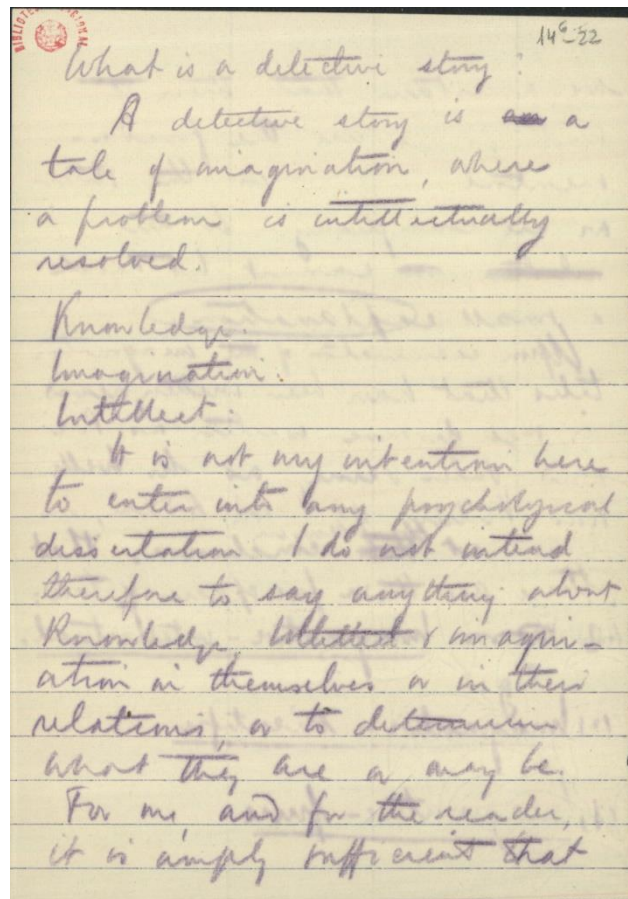 BIBLIOTECA NACIONAL
14⁶-22
What is a detective story?
A detective story is an a
tale of imagination, where
a problem is intellectually
resolved.
Knowledge.
Imagination.
Intellect.
It is not my intention here
to enter into any psychological
dissertation. I do not intend
therefore to say anything about
Knowledge, Intellect & imagin-
ation in themselves or in their
relations, or to determine
what they are or may be.
For me, and for the reader,
it is simply sufficient that